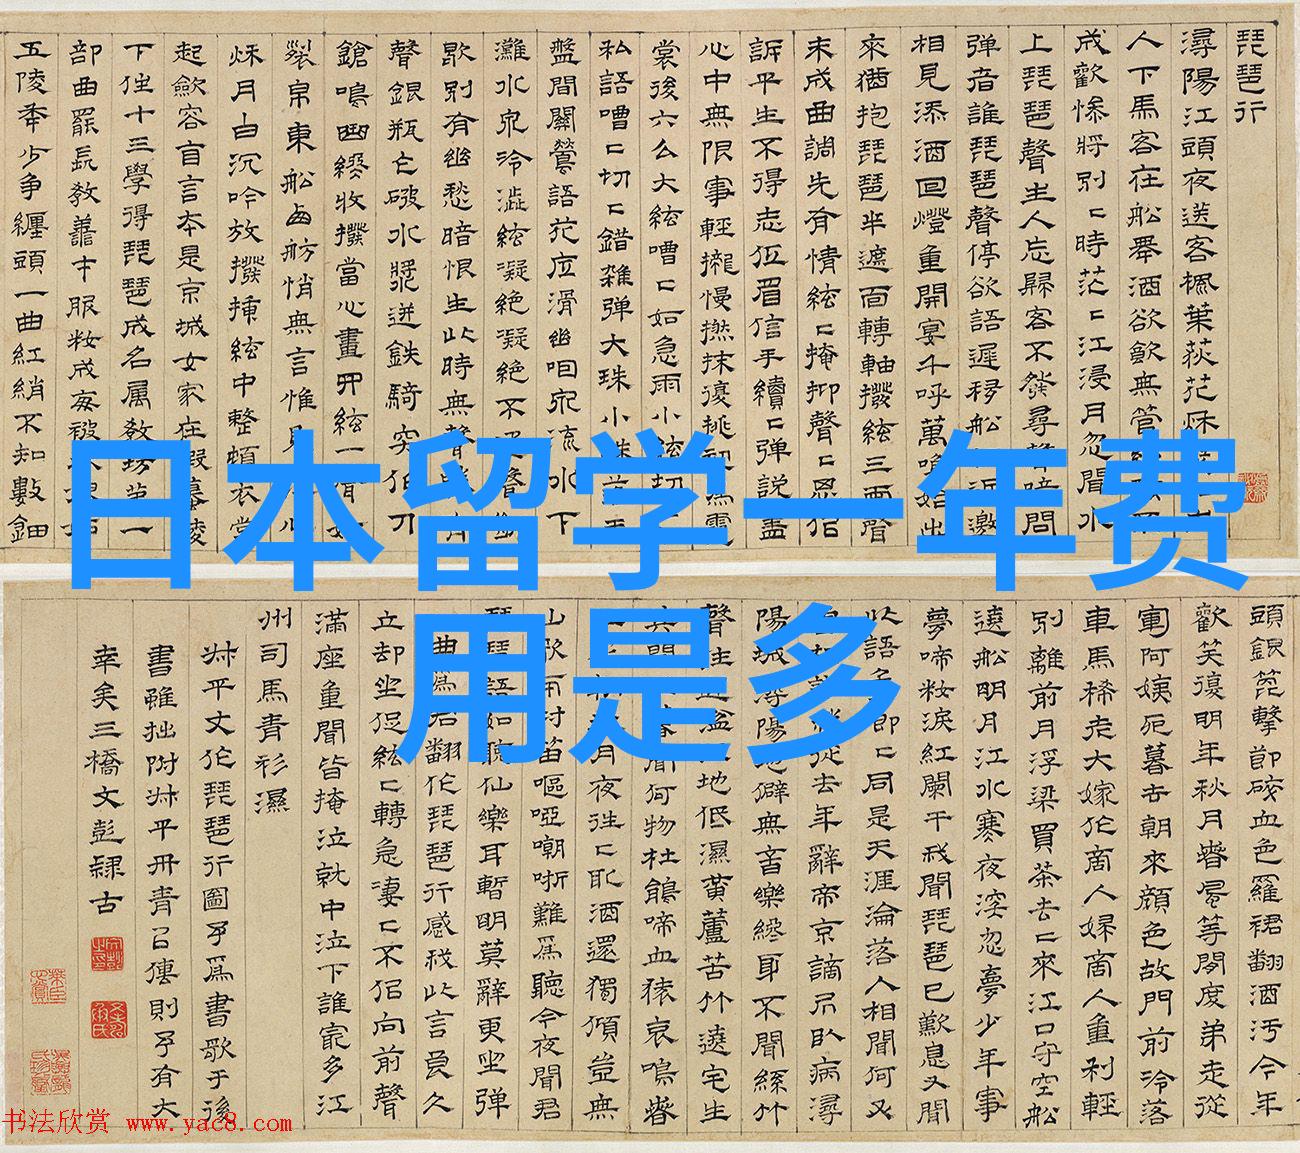 琵琶行
潯陽江頭夜送客楓葉荻花秌
人下馬客在船舉酒欲飲無管
成歡慘將別〻時茫〻江浸月忽聞水
上琵琶聲主人忘歸客不發尋聲暗問
彈者誰琵琶聲停欲語遲移船邀
相見添酒回燈重開宴千呼萬喚始出
來猶抱琵琶半遮面轉軸撥絃三兩聲
未成曲調先有情絃〻掩抑聲〻思佀
訴平生不得志低眉信手續〻彈說盡
心中無限事輕攏慢撚抹復挑初為霓
裳後六么大絃嘈〻如急雨小絃切〻
私語嘈〻切〻錯雜彈大珠小珠落玉
盤間關鶯語花底滑幽咽泉流水下
灘水泉冷澀絃凝絕凝絕不通聲漸
歇別有幽愁暗恨生此時無聲勝
聲銀瓶乍破水漿迸鉄騎突刀
鎗鳴曲終收撥當心畫四絃一聲如
裂帛東船西舫悄無言惟見心
秌月白沉吟放撥揷絃中整頓衣裳
起斂容自言本是京城女家在蝦蟇陵
下住十三學得琵琶成名属教坊苐一
部曲罷長教善才服粧成每被
五陵年少争纏頭一曲紅綃不知數鈿
日本留学一年费
用是多
頭銀篦擊節碎血色羅裙翻酒污今年
歡笑復明年秋月春風等閒度弟走從
軍阿姨死暮去朝來顏色故門前冷落
車馬稀老大嫁作商人婦商人重利輕
別離前月浮梁買茶去〻來江口守空船
遶船明月江水寒夜深忽夢少年事
夢啼粧淚紅闌干我聞琵琶已歎息又聞
此語〻同是天涯淪落人相聞何必
從去年辭帝京謫居臥病潯
陽城潯陽地僻無音樂終年不聞絲竹
聲住近湓地低濕黃蘆苦竹遶宅生
其間聞何物杜鵑啼血猿哀鳴春
月夜往〻取酒還獨傾豈無
山歌村笛嘔啞嘲哳難為聽今夜聞君
琵琶語如聽仙樂耳暫明莫辭更坐彈
曲為君翻作琵琶行感我此言良久
立却坐促絃〻轉急淒〻不佀向前聲
滿座重聞皆掩泣就中泣下誰寂多江
州司馬青衫濕
平丈作琵琶行圖予為書歌于後
書雖拙附平丹青以傳則予有大
幸矣三橋文彭隸古
书法欣赏 www.yac8.com